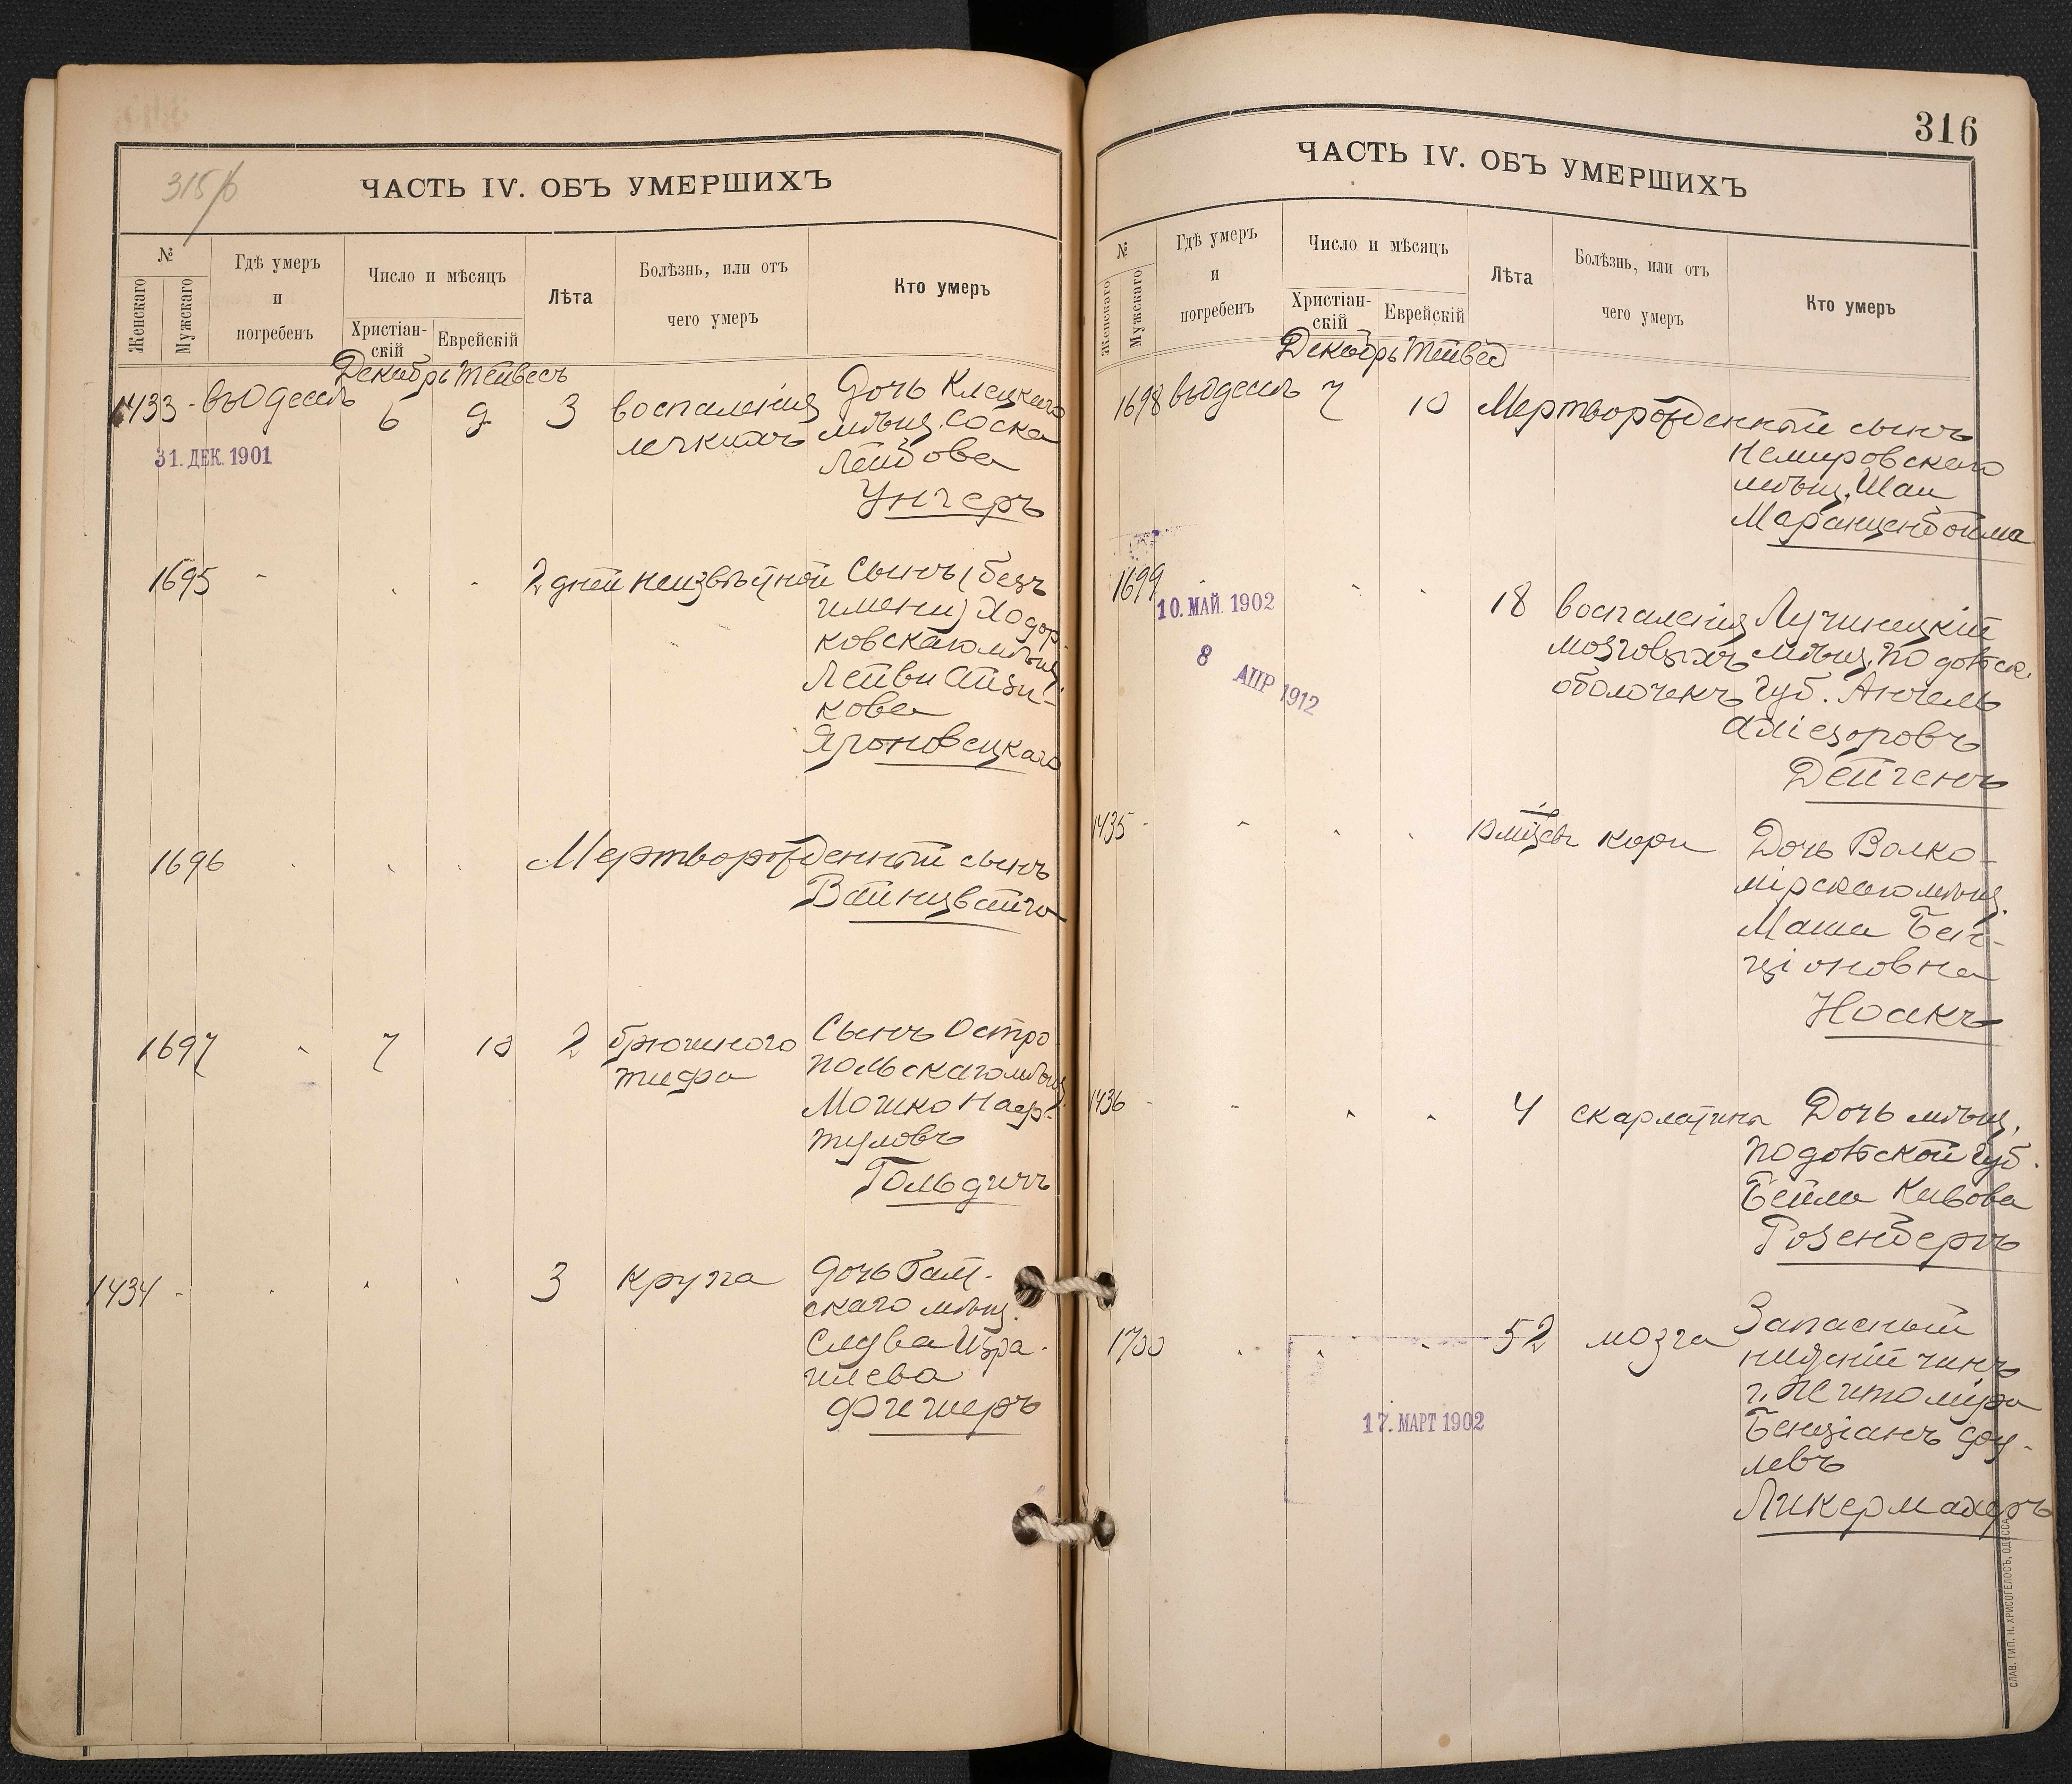 315/б
ЧАСТЬ IV. ОБЪ УМЕРШИХЪ
№
Женскаго
Мужскаго
Гдѣ умеръ
и
погребенъ
Число и мѣсяцъ
Христіан-
скій
Еврейскій
Лѣта
Болѣзнь, или отъ
чего умеръ
Кто умеръ
Декабрь Тейвесъ
1433 - въ Одессѣ 6 9 3 воспаленія Дочь Клецкаго
легкихъ мѣщ. Соска
31. ДЕК. 1901
Лейбова
Унгеръ
1695 - 2 дней неизвѣстной Сынъ (безъ
имени) Ходор-
ковскаго мѣщ.
Лейви Айзи-
кова
Яроновецкаго
1696 Мертворожденный сынъ
Вайнцвайга
1697 7 10 2 брюшного Сынъ Остро
тифа польскаго мѣщ.
Мошко Наф-
туловъ
Гольдичъ
1434 - 3 крупа Дочь
скаго мѣщ.
Изра-
илева
Фишеръ
316
ЧАСТЬ IV. ОБЪ УМЕРШИХЪ
№
Женскаго
Мужскаго
Гдѣ умеръ
и
погребенъ
Число и мѣсяцъ
Христіан-
скій
Еврейскій
Лѣта
Болѣзнь, или отъ
чего умеръ
Кто умеръ
Декабрь Тейвес
1698 въ Одессѣ 7 10 Мертворожденный сынъ
Немировскаго
мѣщ. Шаи
Маранценбойма
1699 18 воспаленія Лучинецкій
10. МАЙ. 1902
мозговыхъ мѣщ. Подольск.
8 АПР 1912
оболочекъ губ. Анчель
Аліезоровъ
Дейченъ
1435 - 10 мѣсяц. кори Дочь Волко-
мірскаго мѣщ.
Маша Бен-
ціоновна
Ноакъ
1436 - 4 скарлатины Дочь мѣщ.
Подольской губ.
Бейла Кивова
Розенбергъ
1700 52 мозга Запасный
нижній чинъ
г. Житоміра
17. МАРТ 1902
Бенціанъ
левъ
Ликермахеръ
СЛАВ. ТИП. Н. ХРИСОГЕЛОСЪ, ОДЕССА.